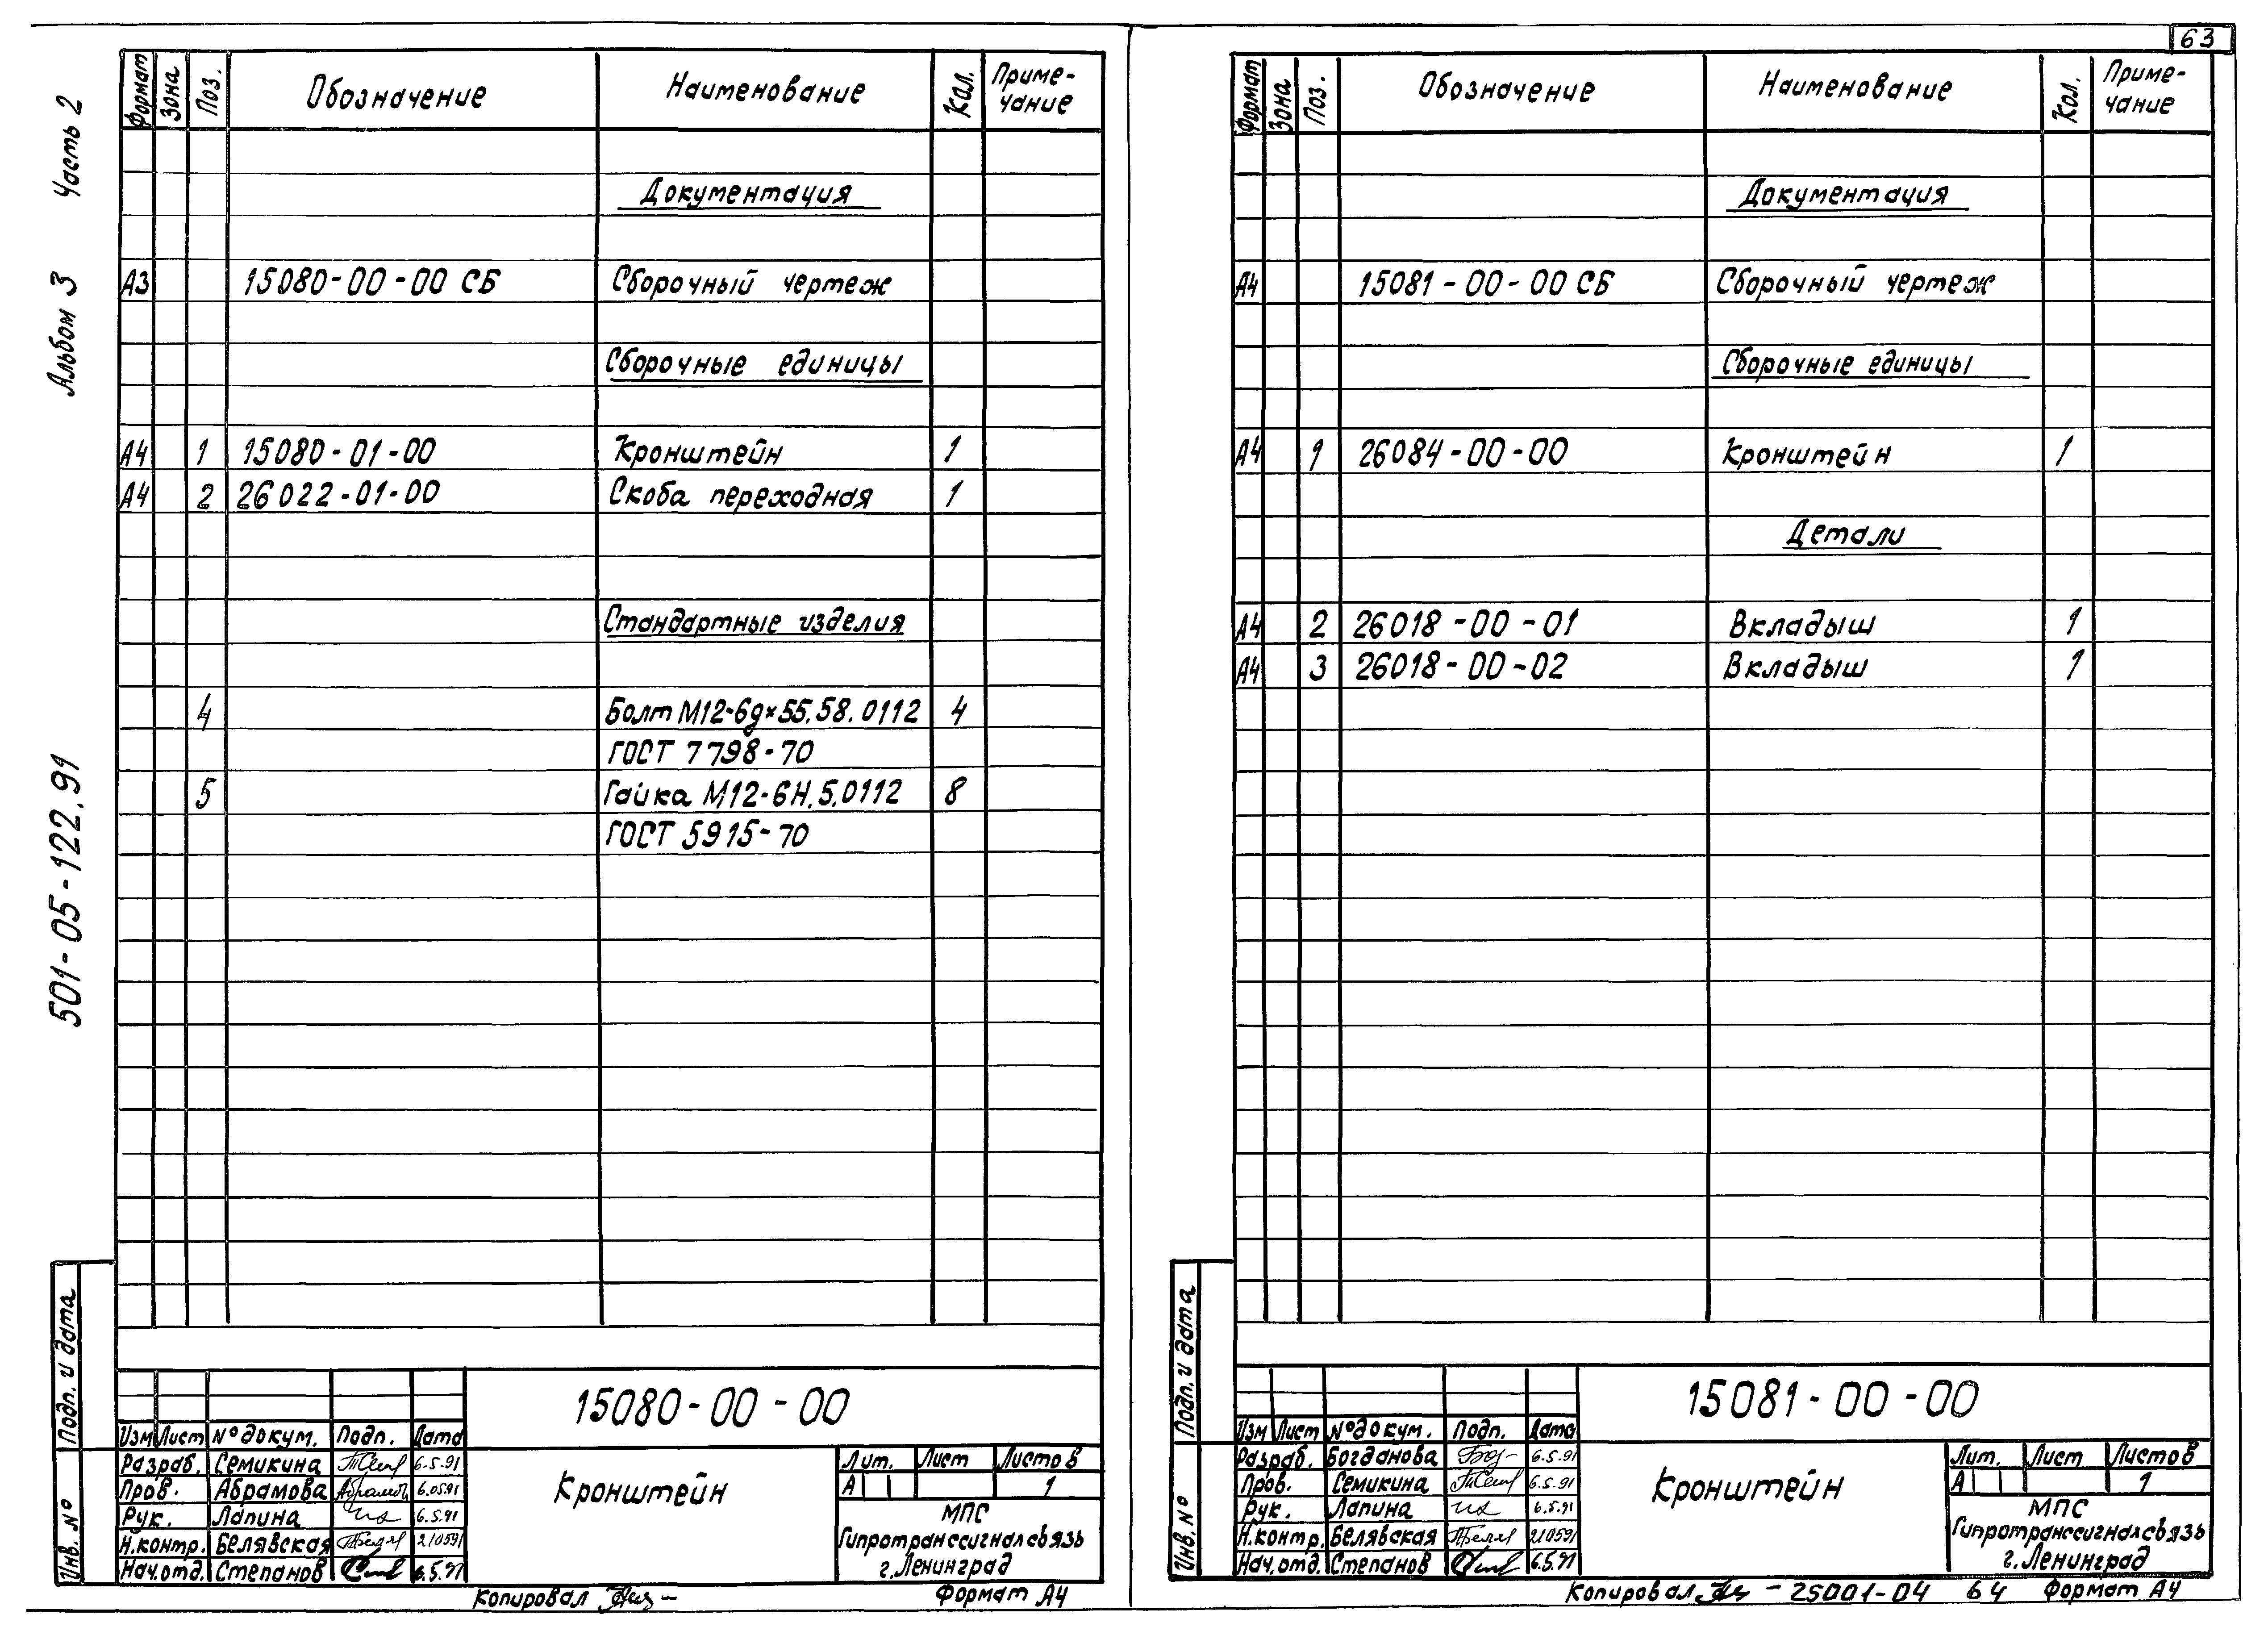 63
Часть 2
Альбом 3
501-05-122.91
Формат Зона Поз. Обозначение Наименование Кол. Приме-
чание
Документация
А3 15080-00-00 СБ Сборочный чертеж
Сборочные единицы
А4 1 15080-01-00 Кронштейн 1
А4 2 26022-01-00 Скоба переходная 1
Стандартные изделия
4 Болт М12-6g×55.58.0112 4
ГОСТ 7798-70
5 Гайка М12-6Н.5.0112 8
ГОСТ 5915-70
Подп. и дата
Инв. №
15080-00-00
Изм Лист № докум. Подп. Дата
Разраб. Семикина 6.5.91
Пров. Абрамова 6.05.91
Рук. Лапина 6.5.91
Н.контр. Белявская 210591
Нач.отд. Степанов 6.5.91
Кронштейн
Лит. Лист Листов
А 1
МПС
Гипротранссигналсвязь
г.Ленинград
Копировал Формат А4
Формат Зона Поз. Обозначение Наименование Кол. Приме-
чание
Документация
А4 15081-00-00 СБ Сборочный чертеж
Сборочные единицы
А4 1 26084-00-00 Кронштейн 1
Детали
А4 2 26018-00-01 Вкладыш 1
А4 3 26018-00-02 Вкладыш 1
Подп. и дата
Инв. №
15081-00-00
Изм Лист № докум. Подп. Дата
Разраб. Богданова 6.5.91
Пров. Семикина 6.5.91
Рук. Лапина 6.5.91
Н.контр. Белявская 210591
Нач.отд. Степанов 6.5.91
Кронштейн
Лит. Лист Листов
А 1
МПС
Гипротранссигналсвязь
г.Ленинград
Копировал - 25001-04 64 Формат А4